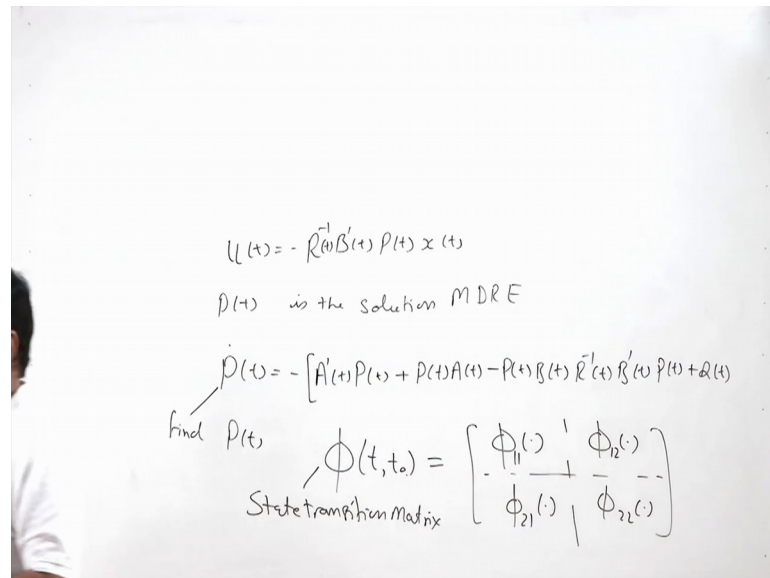 u(t) = - R⁻¹(t) B'(t) P(t) x(t)
P(t) is the solution MDRE
Ṗ(t) = - [A'(t)P(t) + P(t)A(t) - P(t)B(t) R⁻¹(t) B'(t) P(t) + Q(t)
find P(t)
ϕ(t,t₀) = [ ϕ₁₁(·) ϕ₁₂(·)
ϕ₂₁(·) ϕ₂₂(·) ]
State transition Matrix